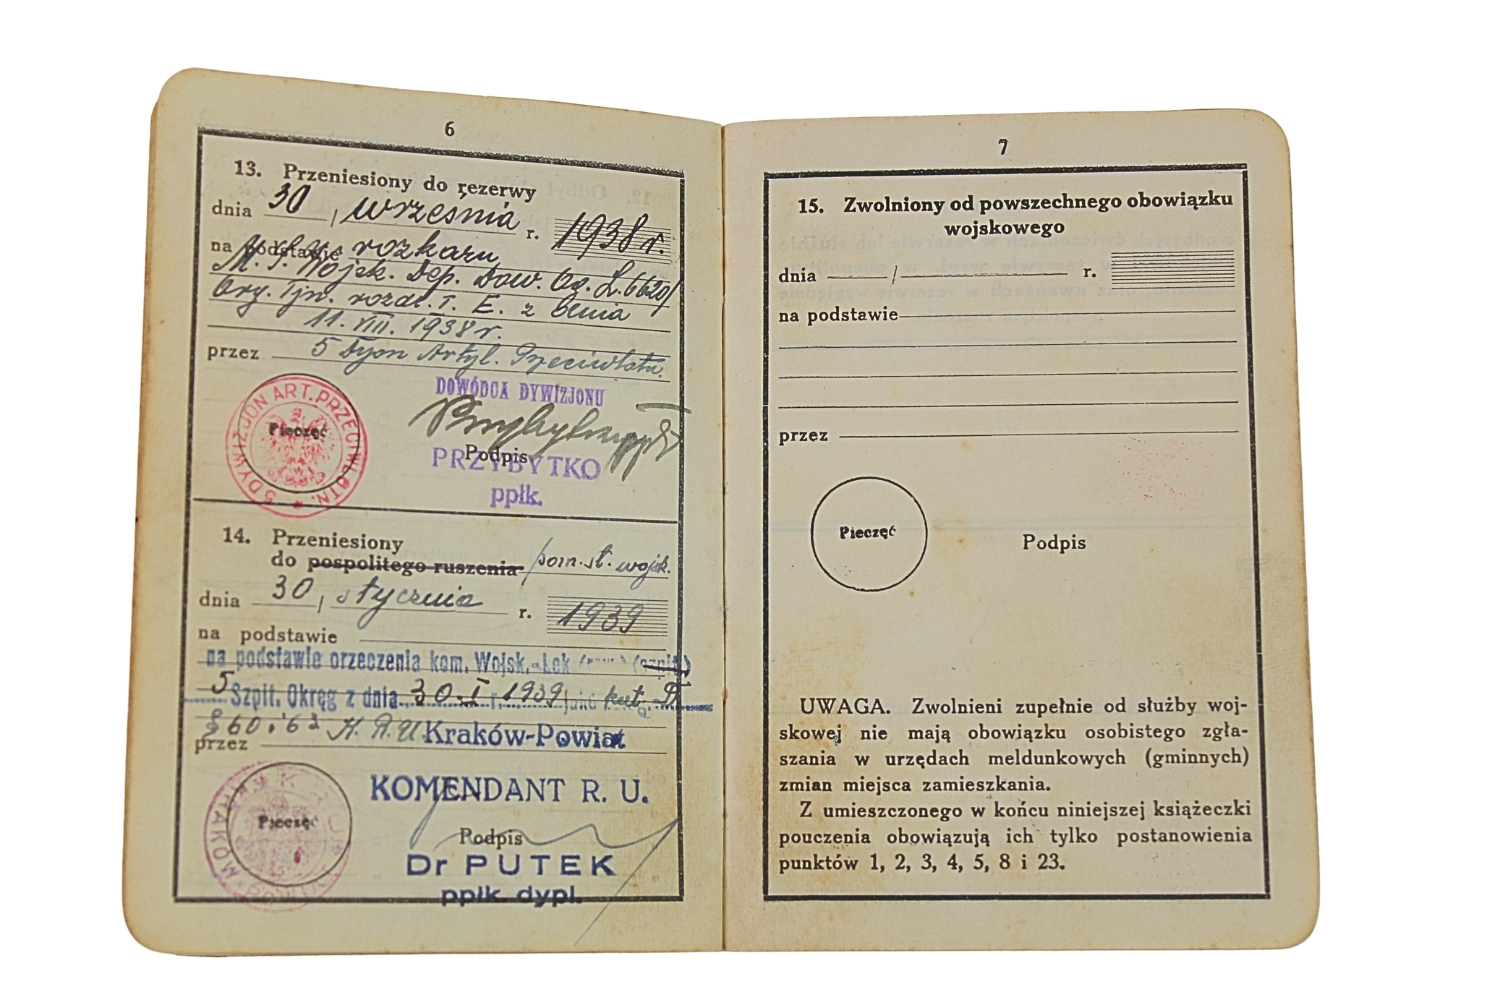 6
13. Przeniesiony do rezerwy
dnia 30 / września r. 1938 r.
na podstawie rozkazu
M. S. Wojsk. Dep. Dow. Og. L. 6620/
Org. Tjn. rozdz. I. E. z dnia
11. VIII. 1938 r.
przez 5 Dyon Artyl. Przeciwlotn.
DOWÓDCA DYWIZJONU
5 DYWIZJON ART. PRZECIWLOTN.
Pieczęć
Podpis
PRZYBYTKO
ppłk.
14. Przeniesiony
do pospolitego ruszenia pom. sł. wojsk.
dnia 30 / stycznia r. 1939
na podstawie
na podstawie orzeczenia kom. Wojsk.-Lek. (szpit.)
5 Szpit. Okręg z dnia 30. I r. 1939 jako kat.
§ 60. i 63 K. R. U. Kraków-Powiat
przez
KOMENDANT R. U.
Pieczęć
Podpis
Dr PUTEK
ppłk. dypl.
7
15. Zwolniony od powszechnego obowiązku
wojskowego
dnia / r.
na podstawie
przez
Pieczęć
Podpis
UWAGA. Zwolnieni zupełnie od służby woj-
skowej nie mają obowiązku osobistego zgła-
szania w urzędach meldunkowych (gminnych)
zmian miejsca zamieszkania.
Z umieszczonego w końcu niniejszej książeczki
pouczenia obowiązują ich tylko postanowienia
punktów 1, 2, 3, 4, 5, 8 i 23.